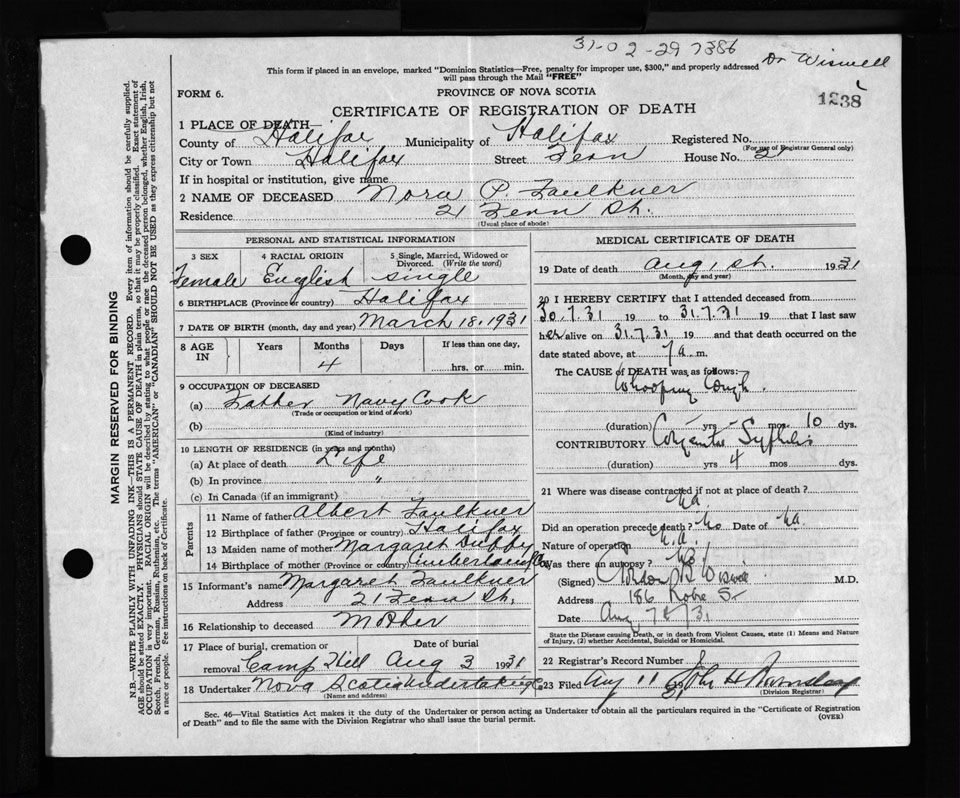 31-02-29 7386
Dr Wiswell
This form if placed in an envelope, marked "Dominion Statistics—Free, penalty for improper use, $300," and properly addressed
will pass through the Mail "FREE"
FORM 6.
PROVINCE OF NOVA SCOTIA
1238
CERTIFICATE OF REGISTRATION OF DEATH
1 PLACE OF DEATH
County of Halifax Municipality of Halifax Registered No.
(For use of Registrar General only)
City or Town Halifax Street Fern House No. 21
If in hospital or institution, give name
2 NAME OF DECEASED Nora P. Faulkner
Residence 21 Fern St.
(Usual place of abode)
PERSONAL AND STATISTICAL INFORMATION
3 SEX 4 RACIAL ORIGIN 5 Single, Married, Widowed or
Divorced. (Write the word)
Female English single
6 BIRTHPLACE (Province or country) Halifax
7 DATE OF BIRTH (month, day and year) March 18, 1931
8 AGE IN Years Months Days If less than one day,
4 hrs. or min.
9 OCCUPATION OF DECEASED
(a) Father Navy Cook
(Trade or occupation or kind of work)
(b)
(Kind of industry)
10 LENGTH OF RESIDENCE (in years and months)
(a) At place of death Life
(b) In province "
(c) In Canada (if an immigrant)
Parents
11 Name of father Albert Faulkner
12 Birthplace of father (Province or country) Halifax
13 Maiden name of mother Margaret Dubby
14 Birthplace of mother (Province or country) Cumberland Co.
15 Informant's name Margaret Faulkner
Address 21 Fern St.
16 Relationship to deceased Mother
17 Place of burial, cremation or Date of burial
removal Camp Hill Aug 3 1931
18 Undertaker Nova Scotia Undertaking Co
(Name and address)
MEDICAL CERTIFICATE OF DEATH
19 Date of death Aug 1st. 1931
(Month, day and year)
20 I HEREBY CERTIFY that I attended deceased from
30.7.31 19 to 31.7.31 19 that I last saw
her alive on 31.7.31 19 and that death occurred on the
date stated above, at 7 a m.
The CAUSE of DEATH was as follows:
Whooping Cough.
(duration) - yrs - mos 10 dys.
CONTRIBUTORY Congenital Syphilis
(duration) yrs 4 mos dys.
21 Where was disease contracted if not at place of death?
Na
Did an operation precede death? No Date of Na.
Nature of operation N.a.
Was there an autopsy? No
(Signed) Wiswell M.D.
Address 186 Robie St
Date Aug 7th/31
State the Disease causing Death, or in death from Violent Causes, state (1) Means and Nature
of Injury, (2) whether Accidental, Suicidal or Homicidal.
22 Registrar's Record Number
23 Filed Aug 11 John H
(Division Registrar)
Sec. 46—Vital Statistics Act makes it the duty of the Undertaker or person acting as Undertaker to obtain all the particulars required in the "Certificate of Registration
of Death" and to file the same with the Division Registrar who shall issue the burial permit.
(OVER)
MARGIN RESERVED FOR BINDING
N.B.—WRITE PLAINLY WITH UNFADING INK—THIS IS A PERMANENT RECORD. Every item of information should be carefully supplied.
AGE should be stated EXACTLY. PHYSICIANS should STATE CAUSE OF DEATH in plain terms, so that it may be properly classified. Exact statement of
OCCUPATION is very important. RACIAL ORIGIN will be described by stating to what people or race the deceased person belonged, whether English, Irish,
Scotch, French, German, Russian, Ruthenian, etc. The terms "AMERICAN" or "CANADIAN" SHOULD NOT BE USED as they express citizenship but not
a race or people. See instructions on back of Certificate.